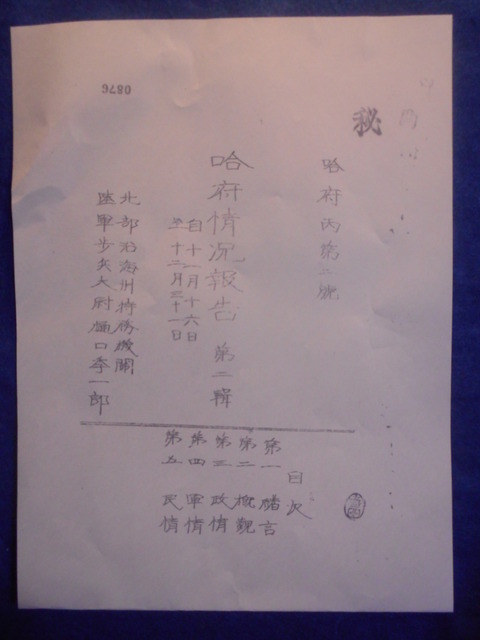 0876
秘
哈府丙第二號
哈府情況報告 第二輯
自十一月十六日
至十二月三十一日
北部沿海州特務機關
陸軍步兵大尉樋口季一郎
目次
第一 緒言
第二 概觀
第三 政情
第四 軍情
第五 民情